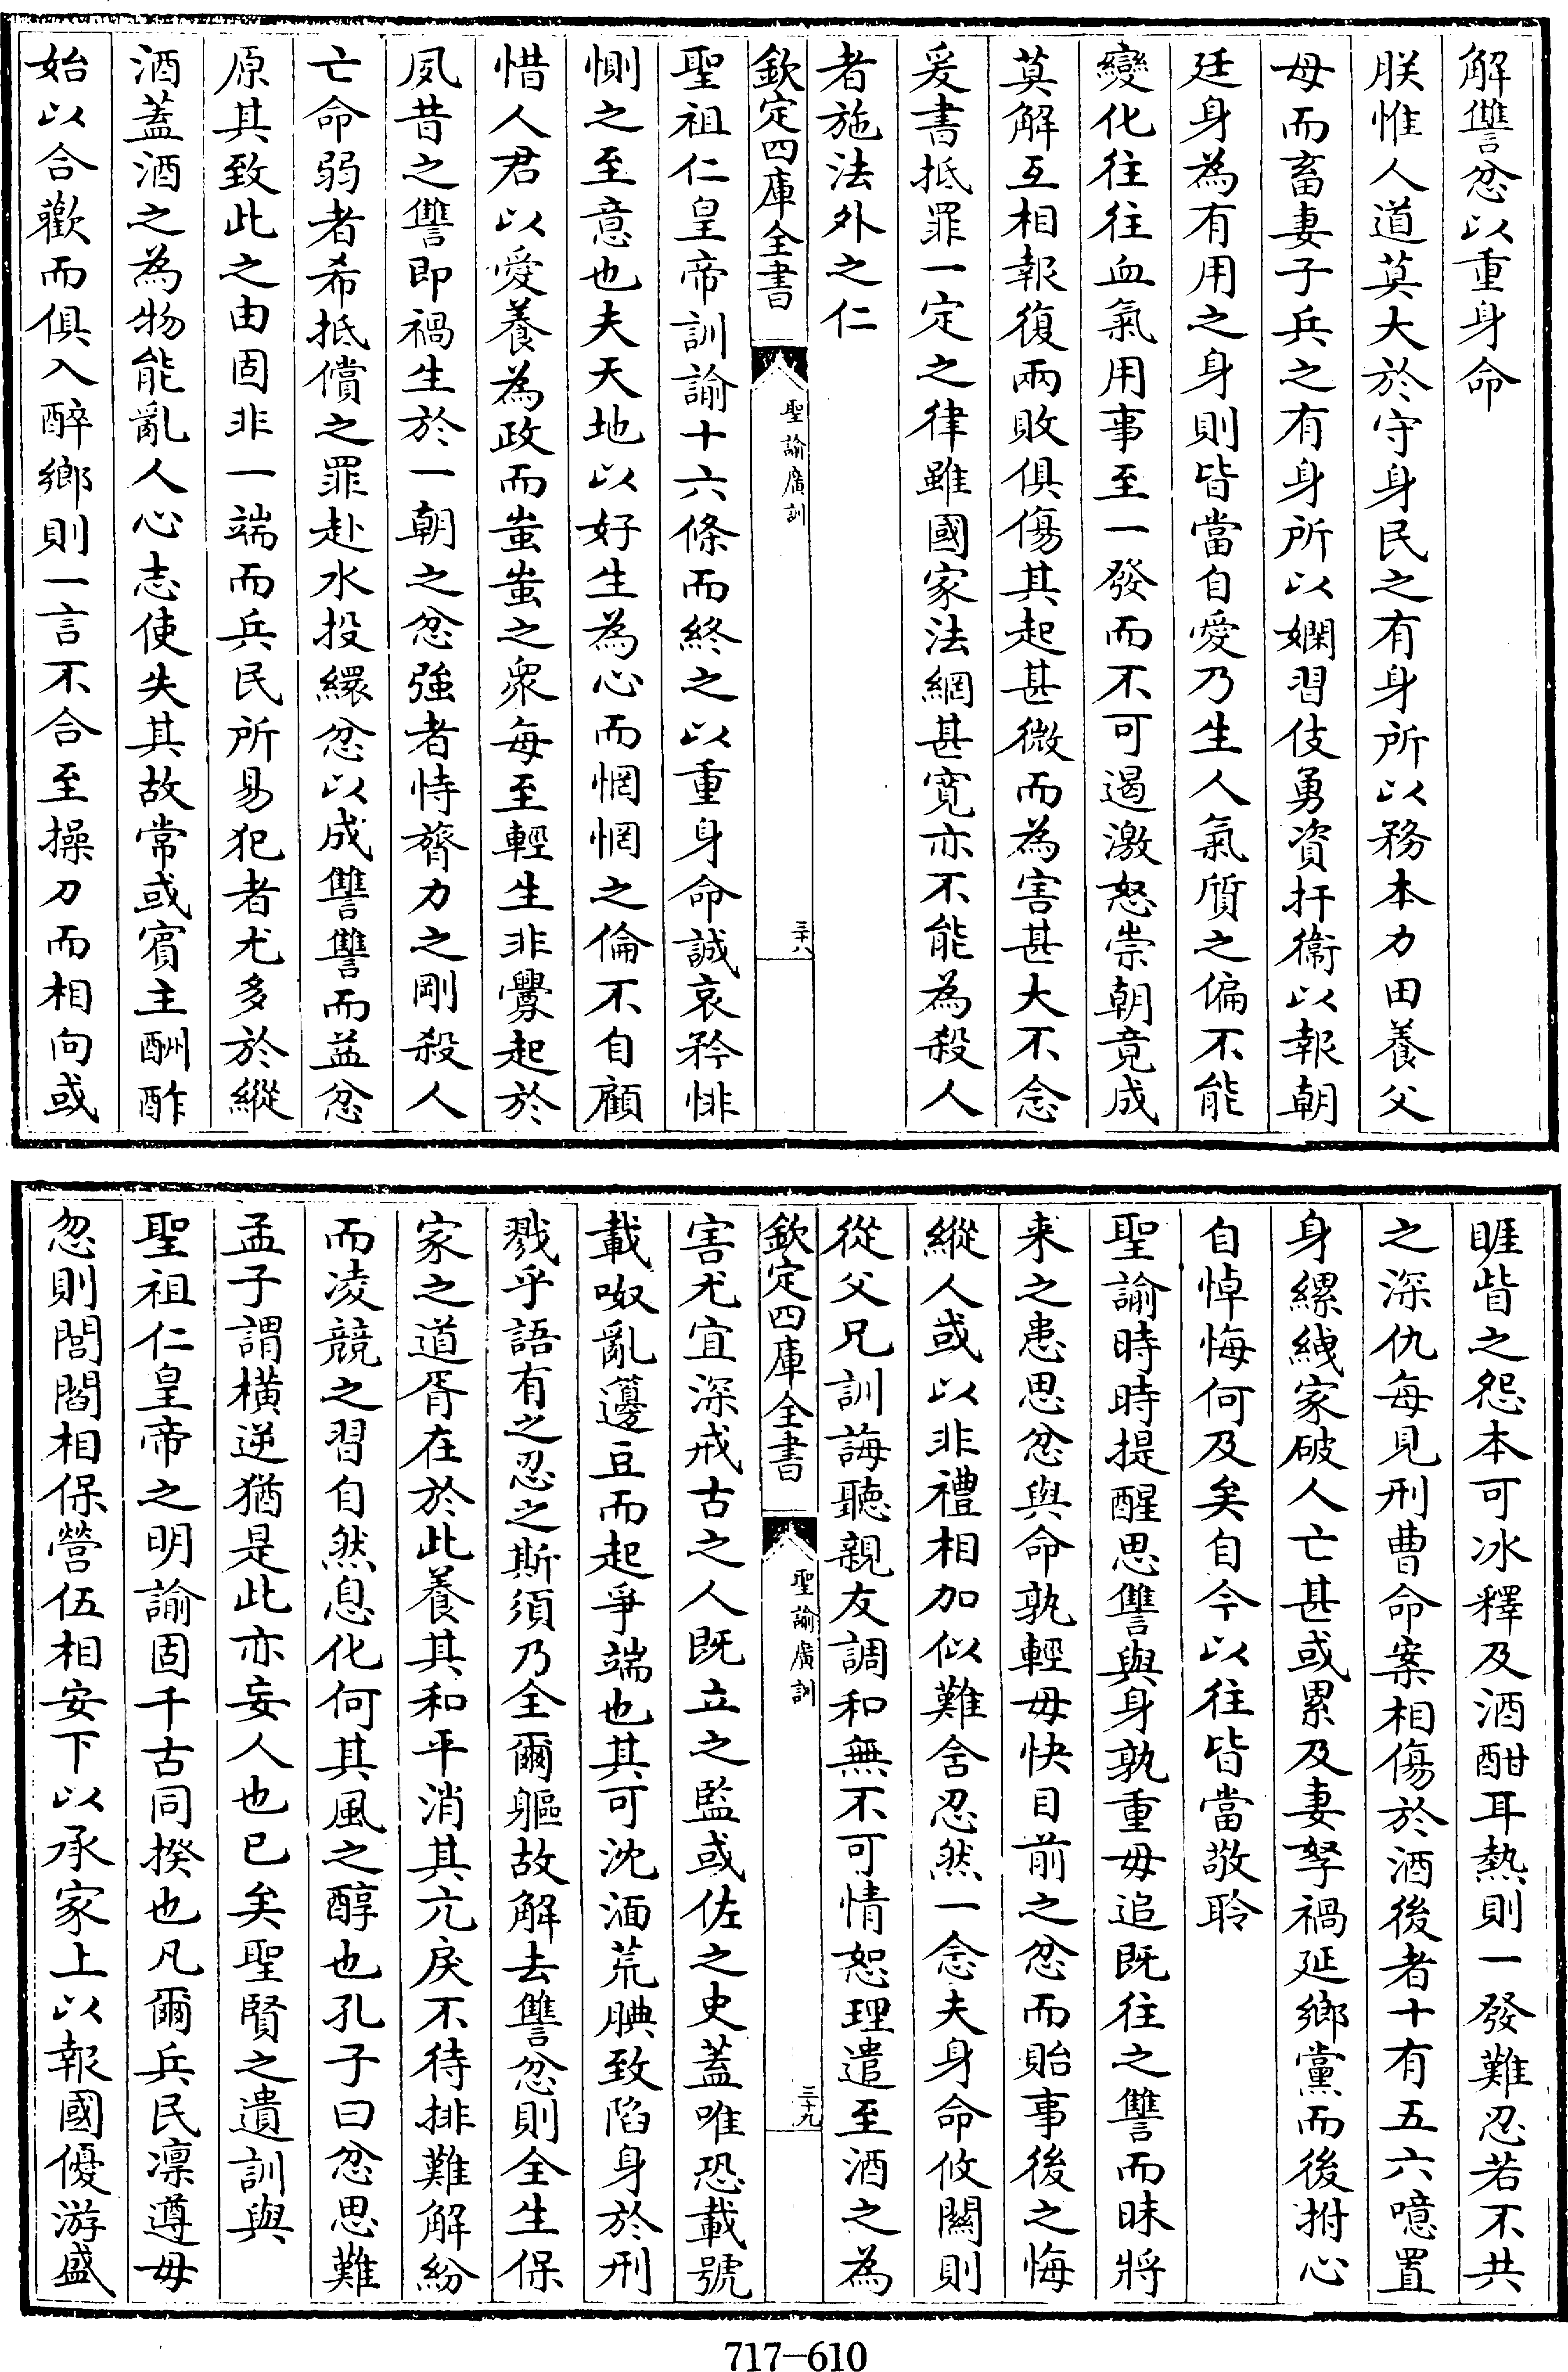 解讐忿以重身命
朕惟人道莫大於守身民之有身所以務本力田養父
母而畜妻子兵之有身所以嫻習伎勇資扞衞以報朝
廷身為有用之身則皆當自愛乃生人氣質之偏不能
變化往往血氣用事至一發而不可遏激怒崇朝竟成
莫解互相報復兩敗俱傷其起甚微而為害甚大不念
爰書抵罪一定之律雖國家法網甚寛亦不能為殺人
者施法外之仁
欽定四庫全書 聖諭廣訓 三十八
聖祖仁皇帝訓諭十六條而終之以重身命誠哀矜悱
惻之至意也夫天地以好生為心而惘惘之倫不自顧
惜人君以愛養為政而蚩蚩之衆每至輕生非釁起於
夙昔之讐即禍生於一朝之忿強者恃膂力之剛殺人
亡命弱者希抵償之罪赴水投繯忿以成讐讐而益忿
原其致此之由固非一端而兵民所易犯者尤多於縱
酒蓋酒之為物能亂人心志使失其故常或賓主酬酢
始以合歡而俱入醉鄉則一言不合至操刀而相向或
睚眥之怨本可冰釋及酒酣耳熱則一發難忍若不共
之深仇每見刑曹命案相傷於酒後者十有五六噫置
身縲絏家破人亡甚或累及妻孥禍延鄉黨而後拊心
自悼悔何及矣自今以往皆當敬聆
聖諭時時提醒思讐與身孰重毋追既往之讐而昧將
来之患思忿與命孰輕毋快目前之忿而貽事後之悔
縱人或以非禮相加似難舍忍然一念夫身命攸關則
從父兄訓誨聽親友調和無不可情恕理遣至酒之為
欽定四庫全書 聖諭廣訓 三十九
害尤宜深戒古之人既立之監或佐之史蓋唯恐載號
載呶亂籩豆而起爭端也其可沈湎荒腆致陷身於刑
戮乎語有之忍之斯須乃全爾軀故解去讐忿則全生保
家之道胥在於此養其和平消其亢戾不待排難解紛
而凌競之習自然息化何其風之醇也孔子曰忿思難
孟子謂橫逆猶是此亦妄人也已矣聖賢之遺訓與
聖祖仁皇帝之明諭固千古同揆也凡爾兵民凛遵毋
忽則閭閻相保營伍相安下以承家上以報國優游盛
717-610